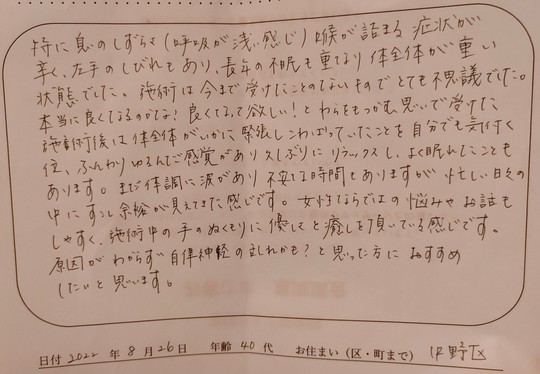 特に息のしずらさ(呼吸が浅い感じ)喉が詰まる症状が
辛く、左手のしびれもあり、長年の不眠も重なり体全体が重い
状態でした。施術は今まで受けたことのないものでとても不思議でした。
本当に良くなるのかな?良くなって欲しい!とわらをもつかむ思いで受けた
施術後は体全体がいかに緊張しこわばっていたことを自分でも気付く
位、ふんわりゆるんで感覚があり久しぶりにリラックスし、よく眠れたことも
あります。まだ体調に波があり不安な時間もありますが忙しい日々の
中に少し余裕が見えてきた感じです。女性ならではの悩みやお話も
しやすく、施術中の手のぬくもりに優しさと癒しを頂いている感じです。
原因がわからず自律神経の乱れかも?と思った方におすすめ
したいと思います。
日付 2022 年 8 月 26 日 年齢 40 代 お住まい(区・町まで) 野区